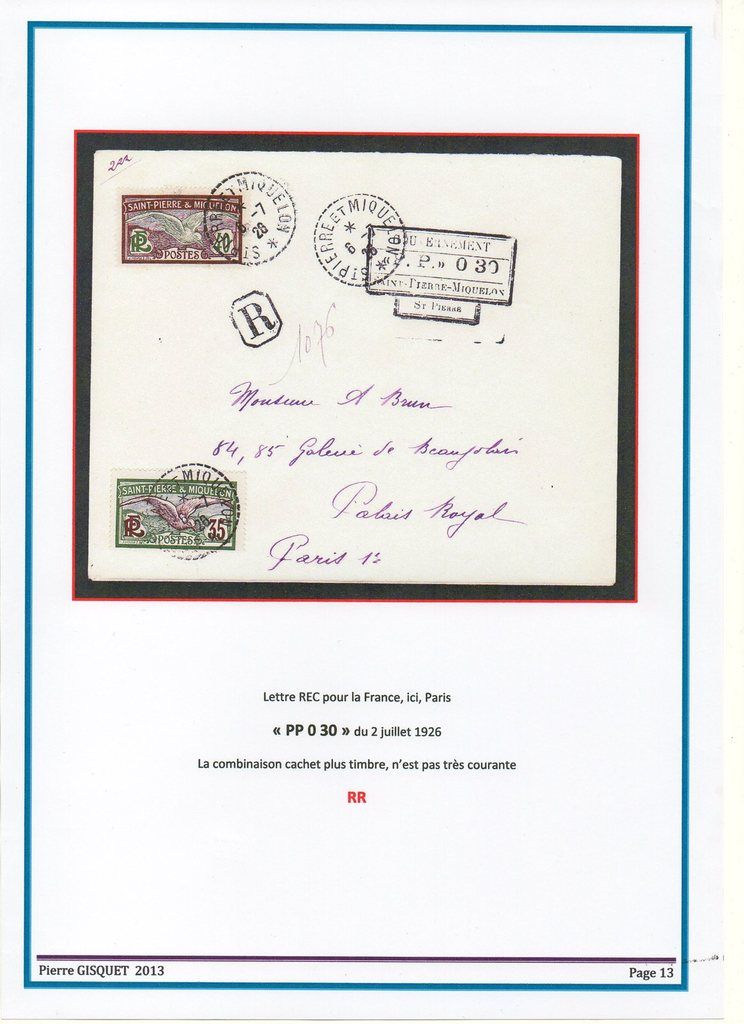 222
SAINT-PIERRE & MIQUELON
40
POSTES
ET MIQUELON
6 -7
26
ST PIERRE ET MIQUELON
6 -7
26
GOUVERNEMENT
P. » 0 30
SAINT-PIERRE-MIQUELON
ST PIERRE
R
1076
Monsieur A Brun
84, 85 Galerie de Beaujolais
Palais Royal
Paris 1e
SAINT-PIERRE & MIQUELON
35
POSTES
MIQUELON
26
Lettre REC pour la France, ici, Paris
« PP 0 30 » du 2 juillet 1926
La combinaison cachet plus timbre, n'est pas très courante
RR
Pierre GISQUET 2013
Page 13